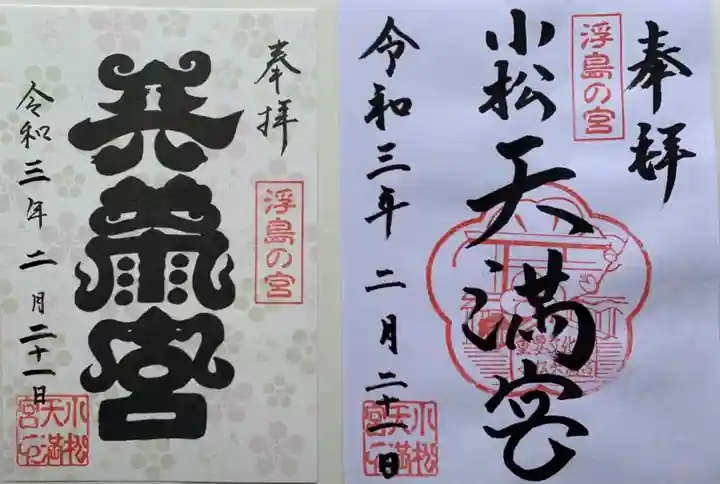 奉拝
浮島の宮
天満宮
令和三年二月二十一日
小松
天満
宮
奉拝
浮島の宮
小松天満宮
重要文化
令和三年二月二十一日
小松
天満
宮